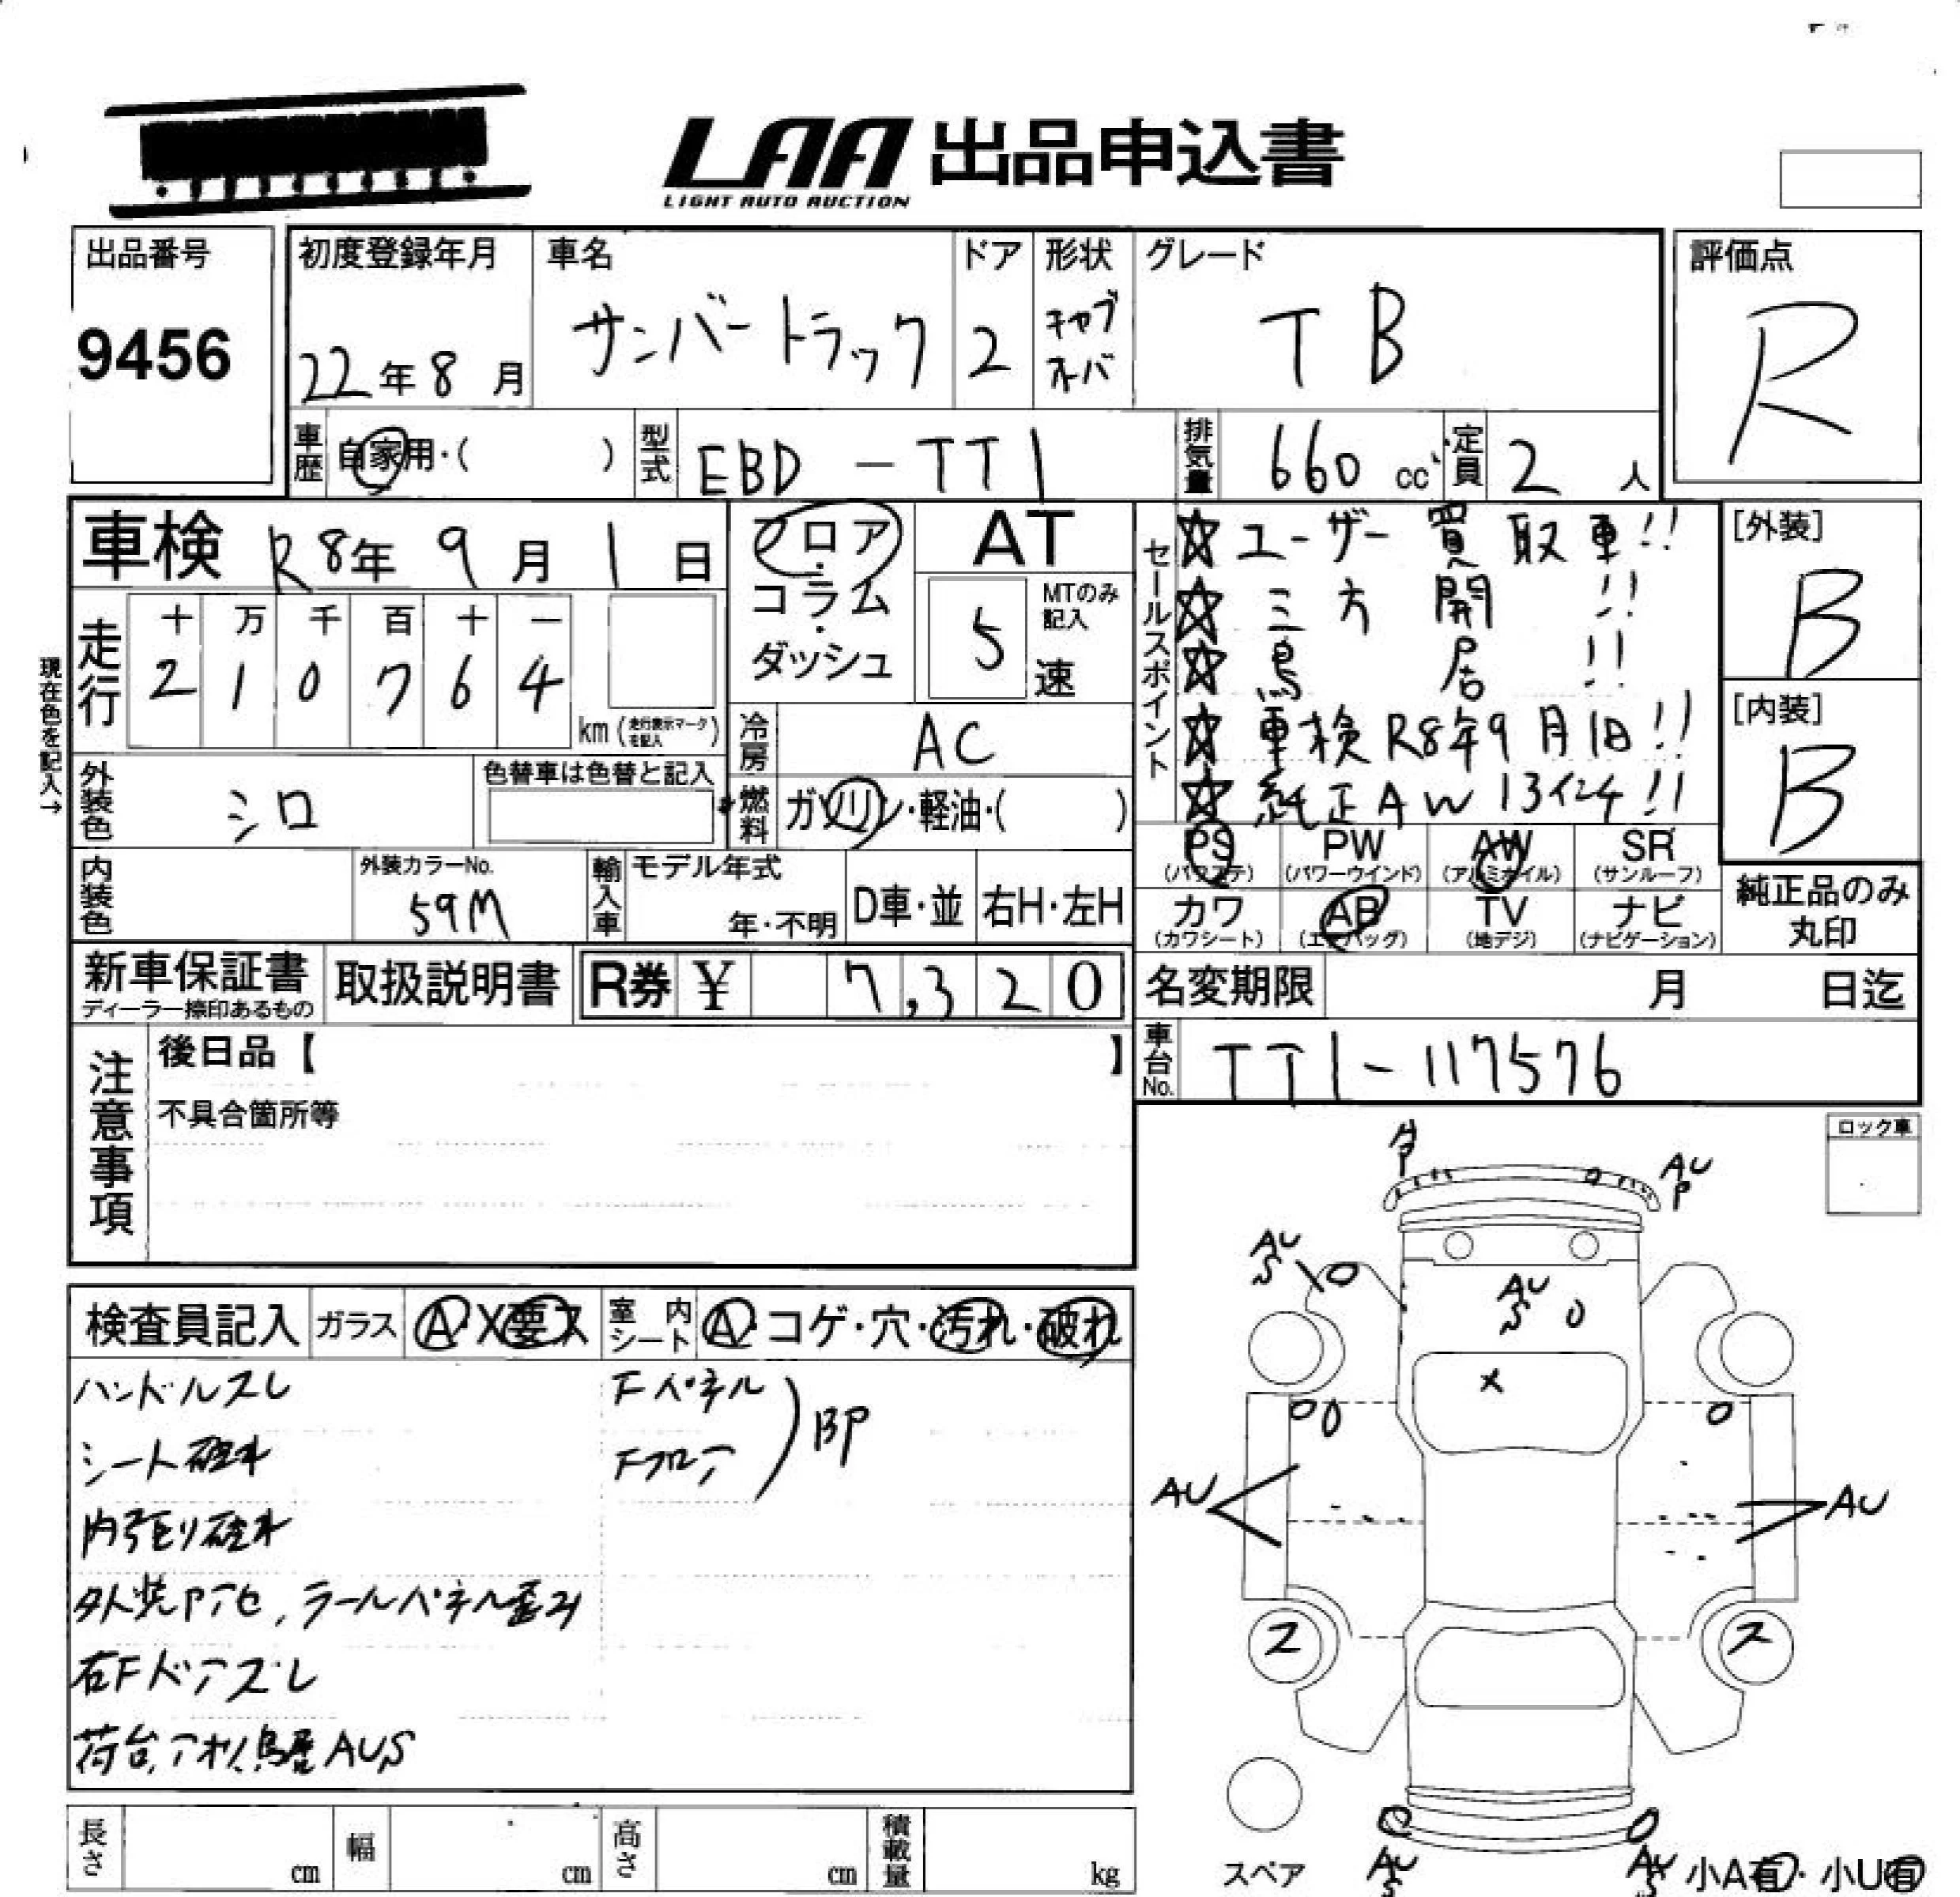 LAA 出品申込書
LIGHT AUTO AUCTION
出品番号
9456
初度登録年月
22年8月
車名
サンバートラック
ドア
2
形状
キャブ
オーバ
グレード
TB
評価点
R
車歴
自家用・( )
型式
EBD-TT1
排気量
660 cc
定員
2人
車検 R8年9月1日
フロア・コラム・ダッシュ
AT
MTのみ記入
5速
セールスポイント
☆ユーザー買取車!!
☆三方開!!
☆鳥居!!
☆車検R8年9月1日!!
☆純正AW13インチ!!
[外装]
B
[内装]
B
現在色を記入→
走行
十 万 千 百 十 一
2 1 0 7 6 4
km(走行表示マークを記入)
冷房
AC
外装色
シロ
色替車は色替と記入
燃料
ガソリン・軽油・( )
PS (パワステ)
PW (パワーウインド)
AW (アルミホイル)
SR (サンルーフ)
カワ (カワシート)
AB (エアバッグ)
TV (地デジ)
ナビ (ナビゲーション)
純正品のみ
丸印
内装色
外装カラーNo.
59M
輸入車
モデル年式
年・不明
D車・並
右H・左H
新車保証書
ディーラー捺印あるもの
取扱説明書
R券 ¥ 7,320
名変期限 月 日迄
車台No.
TT1-117576
注意事項
後日品【 】
不具合箇所等
ロック車
検査員記入
ガラス
A・X要ス
室内シート
A・コゲ・穴・汚れ・破れ
ハンドルスレ
シート破れ
内張り破れ
外装Pアセ、ラールパネル歪み
右Fドアズレ
荷台,アオリ,鳥居AUS
Fパネル
Fフロア
BP
AU
P
AU
S
AU
S
X
AU
AU
ス
ス
AU
S
AU
S
スペア
小A有・小U有
長さ cm
幅 cm
高さ cm
積載量 kg